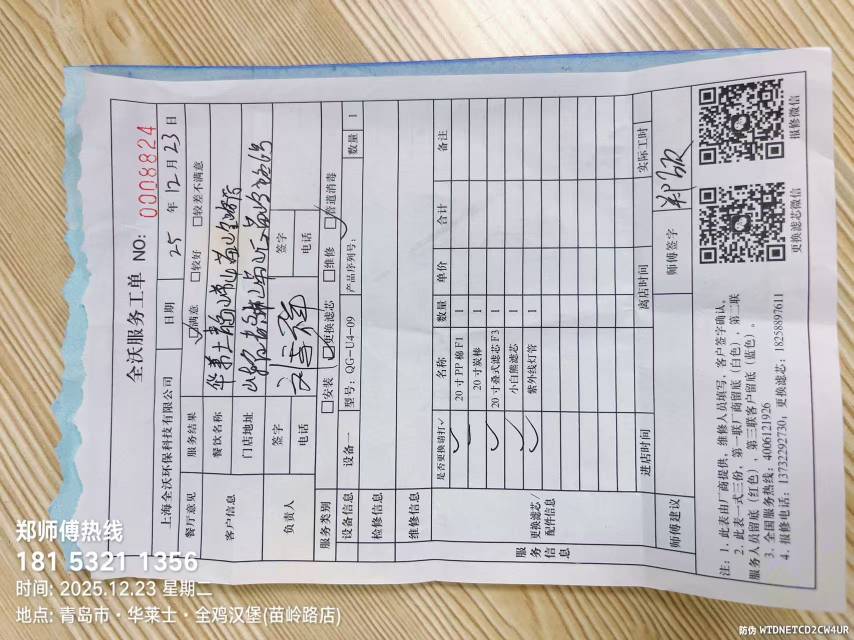 全沃服务工单 NO: 0008824
上海全沃环保科技有限公司 日期 25 年 12 月 23 日
餐厅意见 服务结果 ☑满意 □较好 □较差不满意
客户信息 餐饮名称 华莱士
门店地址
负责人 签字 签字
电话 电话
服务类别 □安装 ☑更换滤芯 □维修 □管道消毒
设备信息 设备一 型号: QG-U4-09 产品序列号: 数量 1
检修信息
维修信息
服务信息 更换滤芯/配件信息 是否更换请打✓ 名称 数量 单价 合计 备注
✓ 20寸PP棉F1 1
✓ 20寸炭棒 1
✓ 20寸叠式滤芯F3 1
✓ 小白熊滤芯 1
✓ 紫外线灯管 1
进店时间 离店时间 实际工时
师傅建议 师傅签字
注: 1. 此表由厂商提供, 维修人员填写, 客户签字确认。
2. 此表一式三份, 第一联厂商留底(白色), 第二联
服务人员留底(红色), 第三联客户留底(蓝色)。
3. 全国服务热线: 4006121926
4. 报修电话: 13732292730; 更换滤芯: 18258897611
更换滤芯微信 报修微信
郑师傅热线
181 5321 1356
时间: 2025.12.23 星期二
地点: 青岛市·华莱士·全鸡汉堡(苗岭路店)
防伪 WTDNETCD2CW4UR